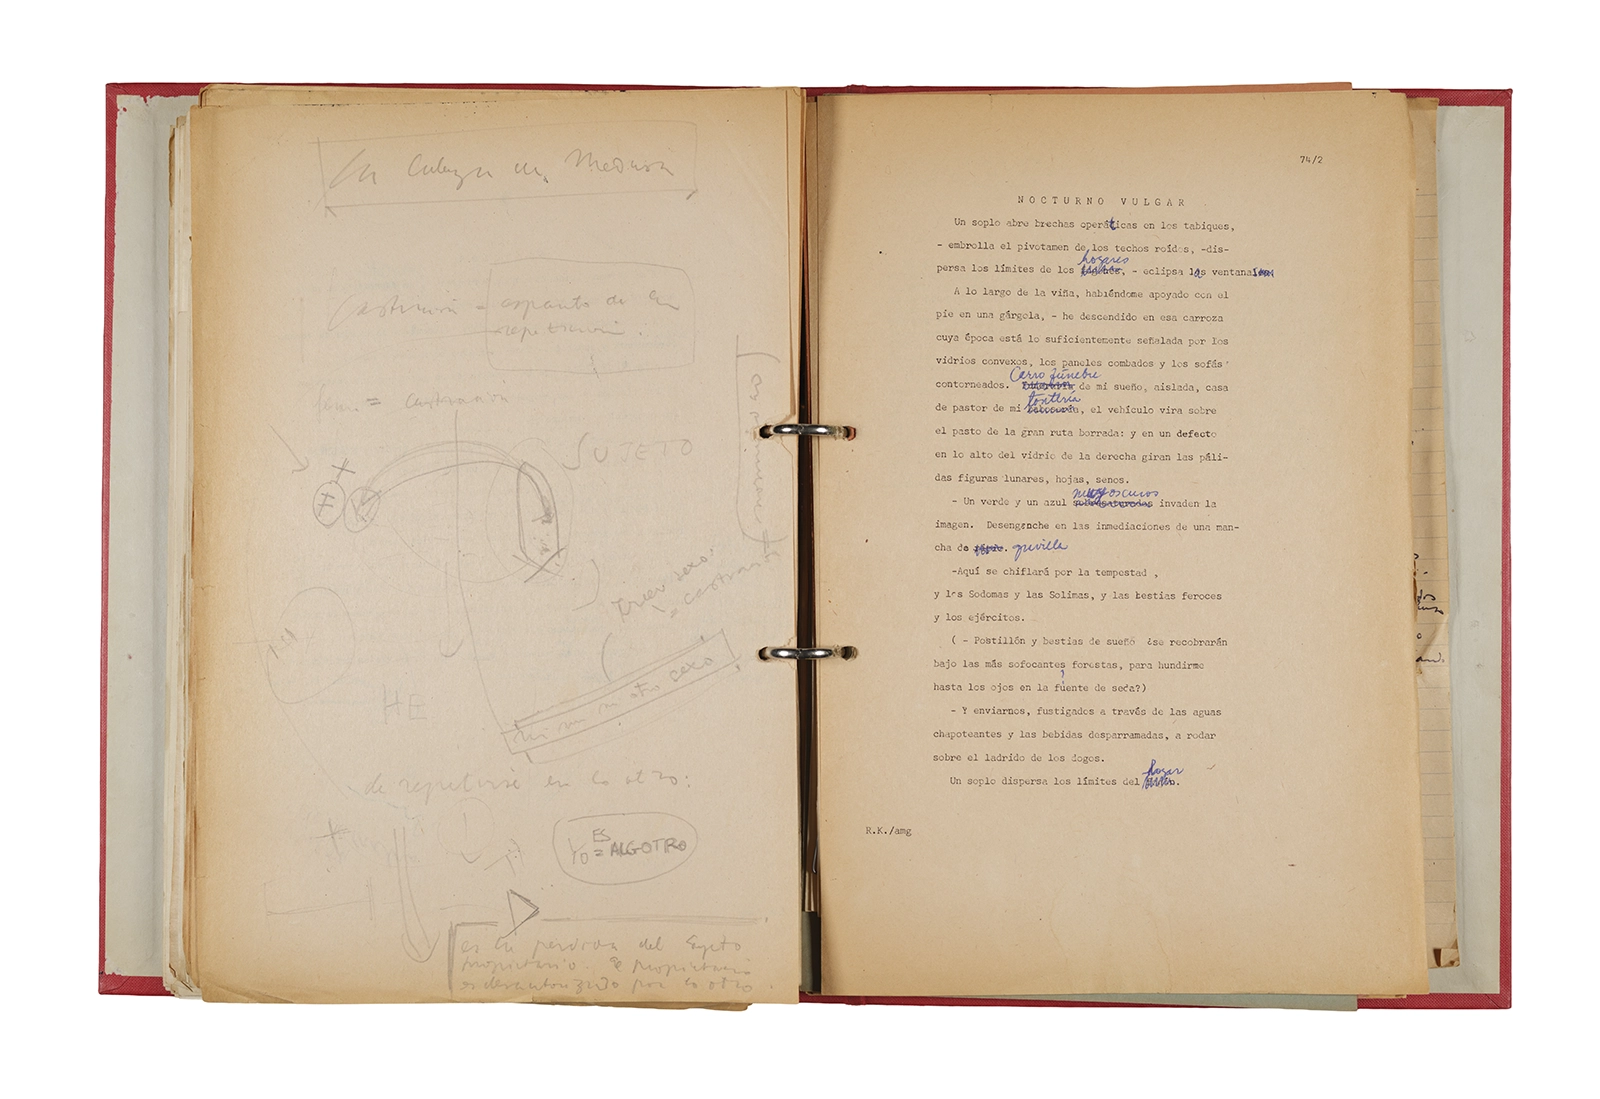 La Cabeza de Medusa
Castración = espanto de la
repetición.
= castración
SUJETO
Tener sexo:
= castración
otro sexo
HE
de repetirse en lo otro:
ES
YO = ALGOTRO
es la perdida del Sujeto
propietario. El propietario
es desautorizado por lo otro.
74/2
NOCTURNO VULGAR
Un soplo abre brechas operáticas en los tabiques,
- embrolla el pivotamen de los techos roídos, -dis-
hogares
persa los límites de los , - eclipsa las ventanas
A lo largo de la viña, habiéndome apoyado con el
pie en una gárgola, - he descendido en esa carroza
cuya época está lo suficientemente señalada por los
vidrios convexos, los paneles combados y los sofás
Carro fúnebre
contorneados. de mi sueño, aislada, casa
tontería
de pastor de mi , el vehículo vira sobre
el pasto de la gran ruta borrada: y en un defecto
en lo alto del vidrio de la derecha giran las páli-
das figuras lunares, hojas, senos.
muy oscuros
- Un verde y un azul invaden la
imagen. Desenganche en las inmediaciones de una man-
cha de . gravilla
-Aquí se chiflará por la tempestad ,
y las Sodomas y las Solimas, y las bestias feroces
y los ejércitos.
( - Postillón y bestias de sueño ¿se recobrarán
bajo las más sofocantes forestas, para hundirme
hasta los ojos en la fuente de seda?)
- Y enviarnos, fustigados a través de las aguas
chapoteantes y las bebidas desparramadas, a rodar
sobre el ladrido de los dogos.
hogar
Un soplo dispersa los límites del .
R.K./amg